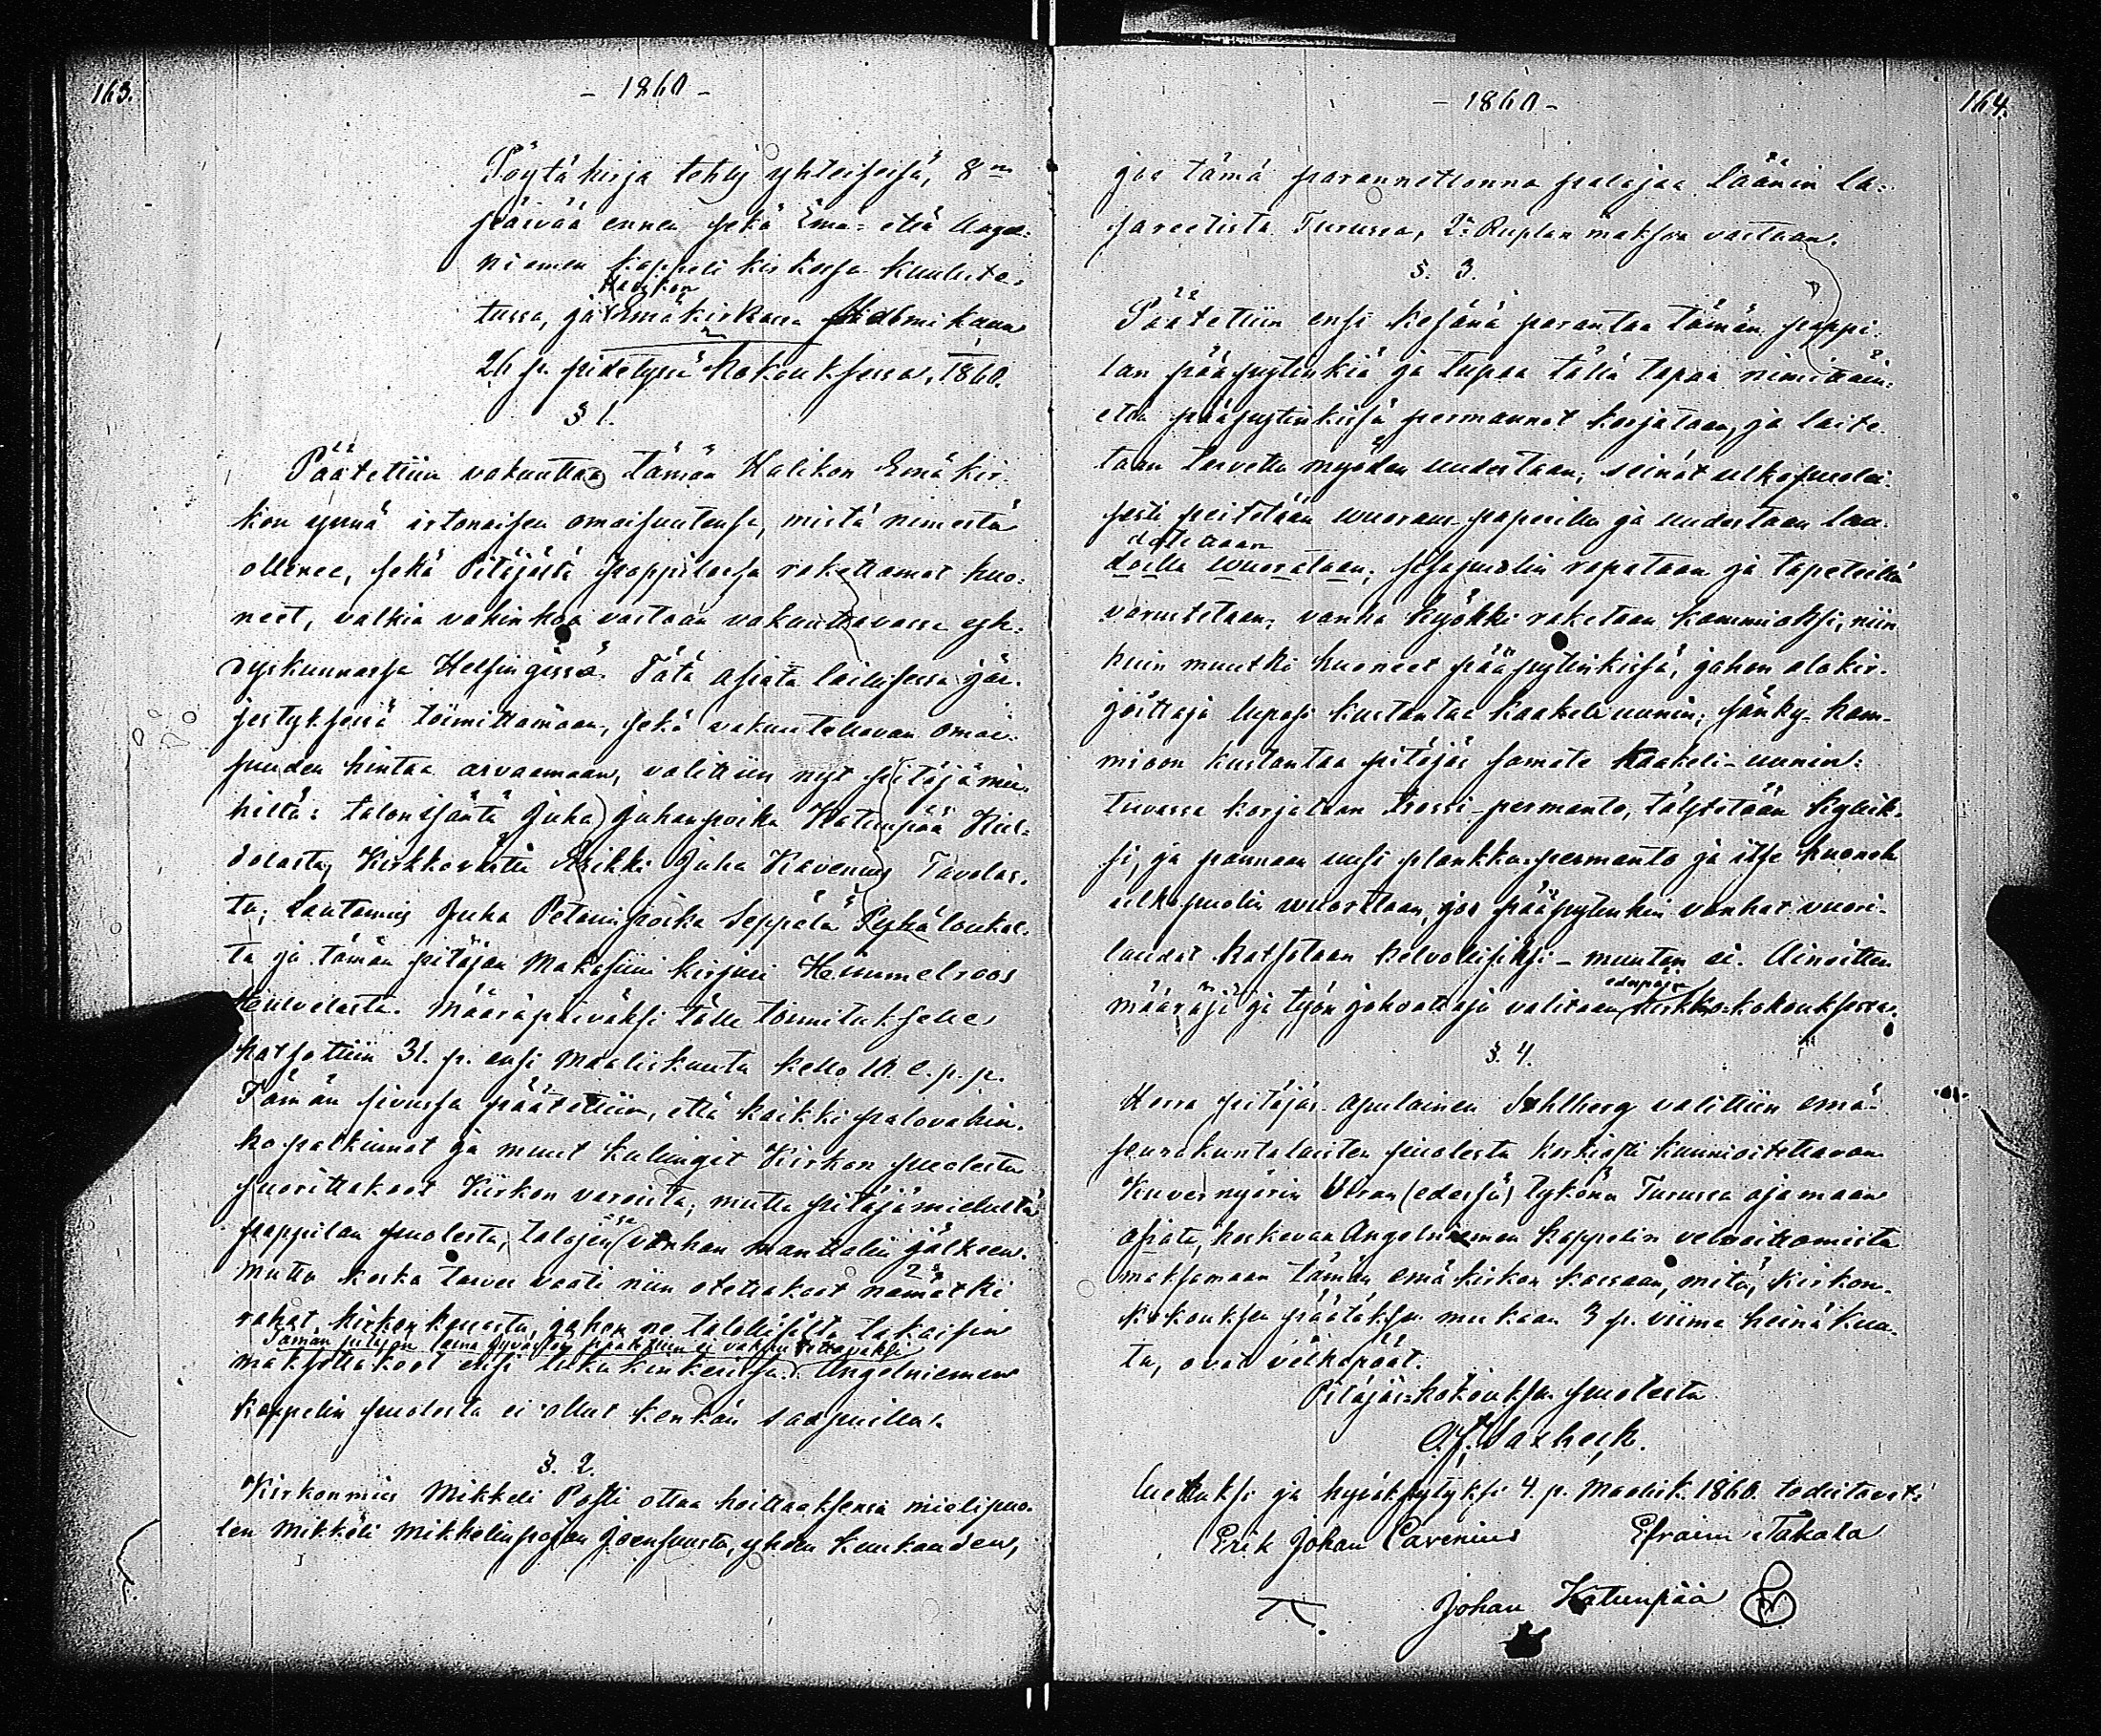 163.
- 1860 -
Pöytäkirja tehty yhteisessä, 8 m
päivää ennen sekä Emä- että Angel-
niemen kappeli kirkossa kuulute-
tussa, ja Emäkirkossa Helmikuun
26 p. pidetyssä kokouksessa, 1860.
§ 1.
Päätettiin vakuuttaa tämän Halikon Emäkir-
kon ynnä irtonaisen omaisuutensa, mistä nimestä
ollenee, sekä Pitäjästä pappilassa rakettamat huo-
neet, valkia vahinkoa vastaan vakuuttavassa yh-
dyskunnassa Helsingissä. Tätä asiata laillisessa jär-
jestyksessä toimittamaan, sekä vakuutettavan omai-
suuden hintaa arvaamaan, valittiin nyt pitäjämie-
hiltä: talonisäntä Juha Juhanpoika Katunpää
Kirkkoväärti Erikki Juha Kavenius Tavolas-
ta, Lautamies Juha Petarinpoika Seppälä Pyhäloukas-
ta ja tämän pitäjän Makasiini kirjuri Hemmelroos
Määräpäiväksi tälle toimitukselle
katsottiin 31. p. ensi Maaliskuuta kello 10. e. p. p.
Tämän sivussa päätettiin, että kaikki palovahin-
kopalkinnot ja muut kulungit Kirkon puolesta
suorittakoot Kirkon varoista, mutta pitäjämiehiltä
pappilan puolesta, talojensa vanhan manttalin jälkeen.
Mutta koska tarve vaati niin otettakoot nämätki
rahat kirkon kassasta, johon ne talollisilta takaisin
Tämän pitäjän laina jyvästöä päätettiin ei vakuutettavaksi
maksettakoot ensi lukukinkeriltä. Angelniemen
kappelin puolesta ei ollut kenkän saapuilla.
§. 2.
Kirkonmies Mikkeli Posti ottaa hoittaaksensa mielipuo-
len Mikkeli Mikkelinpojan Joensuusta, yhden kuukauden,
- 1860 -
164.
jos tämä parannettonna palajaa Läänin la-
sareetista Turussa, 2 Ruplan maksoa vastaan.
§. 3.
Päätettiin ensi kesänä parantaa tämän pappi-
lan pääpytinkiä ja tupaa tällä tapaa nimittäin:
että pääpytinkissä permannot korjataan, ja laite-
taan tarvetta myöden uudestaan, seinät ulkopuolei-
sesti peitetään wuoraus-paperilla ja uudestaan lau-
doilla wuorataan; sisäpuolin rapataan ja tapeteilla
varustetaan, vanha kyökki raketaan kammioksi, niin
kuin muutki huoneet pääpytinkissä, johon alakir-
joittaja lupasi kustantaa kaakeli uunin; sänky-kam-
mioon kustantaa pitäjäs samate kaakeli-uunin:
tuvassa korjataan trossi-permanto, täytetään
si, ja pannaan uusi plankku-permanto ja itse huoneh
ulkopuolin wuorataan, jos pääpytinkin vanhat vuori-
laudat katsotaan kelvollisiksi - muuten ei. Ainoitten
määrääji ja työn johoattaja valitaan edespäin kirkko-kokouksessa.
§. 4.
Herra pitäjäs-apulainen Sahlberg valittiin emä-
seurakuntalaisten puolesta korkiasti kunnioitettavan
Kuvernyörin Viran (edessä) tykönä Turussa ajamaan
asiata, koskevan Angelniemen kappelin velvoittamista
maksamaan tämän emäkirkon kassaan, mitä, kirkon-
kokouksen päätöksen mukaan 3 p. viime heinäkuu-
ta, ovat velkapäät.
Pitäjäs-kokouksen puolesta
Luetuksi ja hyväksytyksi 4. p. Maalisk. 1860. todistavat:
Erik Johan Cavenius Efraim Takala
Johan Katunpää